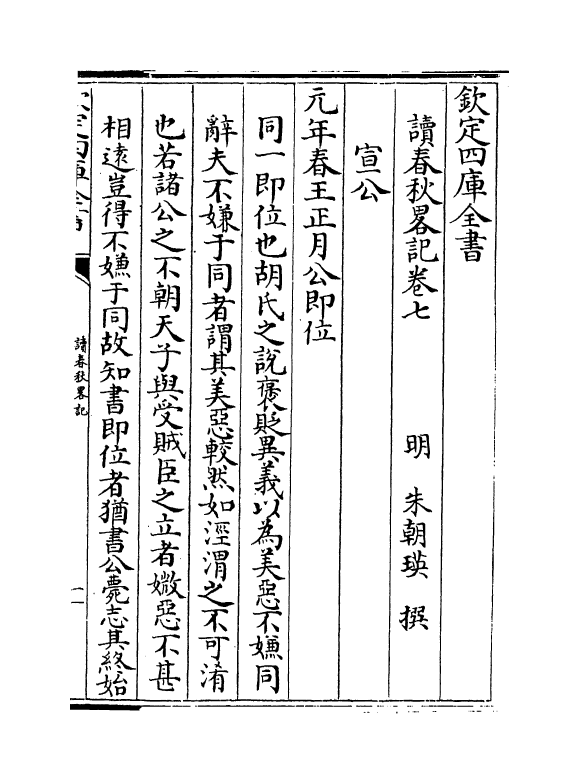 欽定四庫全書
讀春秋畧記卷七
明 朱朝瑛 撰
宣公
元年春王正月公即位
同一即位也胡氏之說褒貶異義以為美惡不嫌同
辭夫不嫌于同者謂其美惡較然如涇渭之不可淆
也若諸公之不朝天子與受賊臣之立者媺惡不甚
相遠豈得不嫌于同故知書即位者猶書公薨志其終始
讀春秋畧記
一